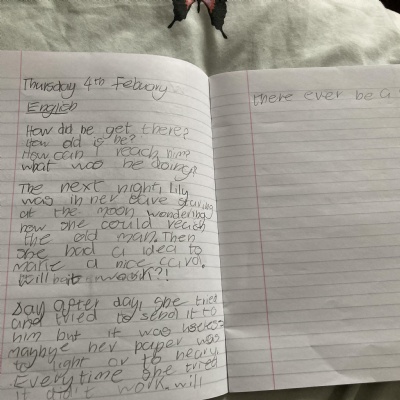 Thursday 4th Febuary
English
How did he get there?
How old is he?
How can I reach him?
what was he doing?
The next night, lily
was in her  staring
at the moon wondering
how she could reach
the old man. Then
she had a idea to
make a nice card.
Will  work?!
Day after day, she tried
and tried to send it to
him but it was useless
maybye her paper was
to light or to heavy.
Everytime she tried
it didt work. will
there ever be a